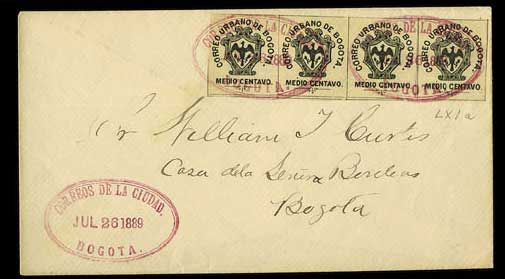 CORREO URBANO DE BOGOTA. CORREO URBANO DE BOGOTA. CORREO URBANO DE BOGOTA. CORREO URBANO DE BOGOTA.
MEDIO CENTAVO. MEDIO CENTAVO. MEDIO CENTAVO. MEDIO CENTAVO.
LXIa
Sr William T Curtis
Casa de la Senora
Bogota
CORREOS DE LA CIUDAD.
JUL 26 1889
BOGOTA.